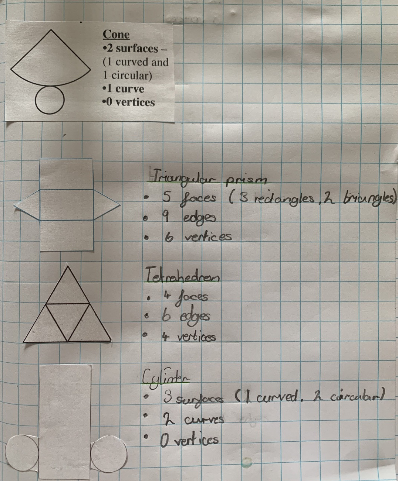 Cone
•2 surfaces –
(1 curved and
1 circular)
•1 curve
•0 vertices
Triangular prism
• 5 faces (3 rectangles, 2 triangles)
• 9 edges
• 6 vertices
Tetrahedron
• 4 faces
• 6 edges
• 4 vertices
Cylinder
• 3 surfaces (1 curved, 2 circular)
• 2 curves
• 0 vertices